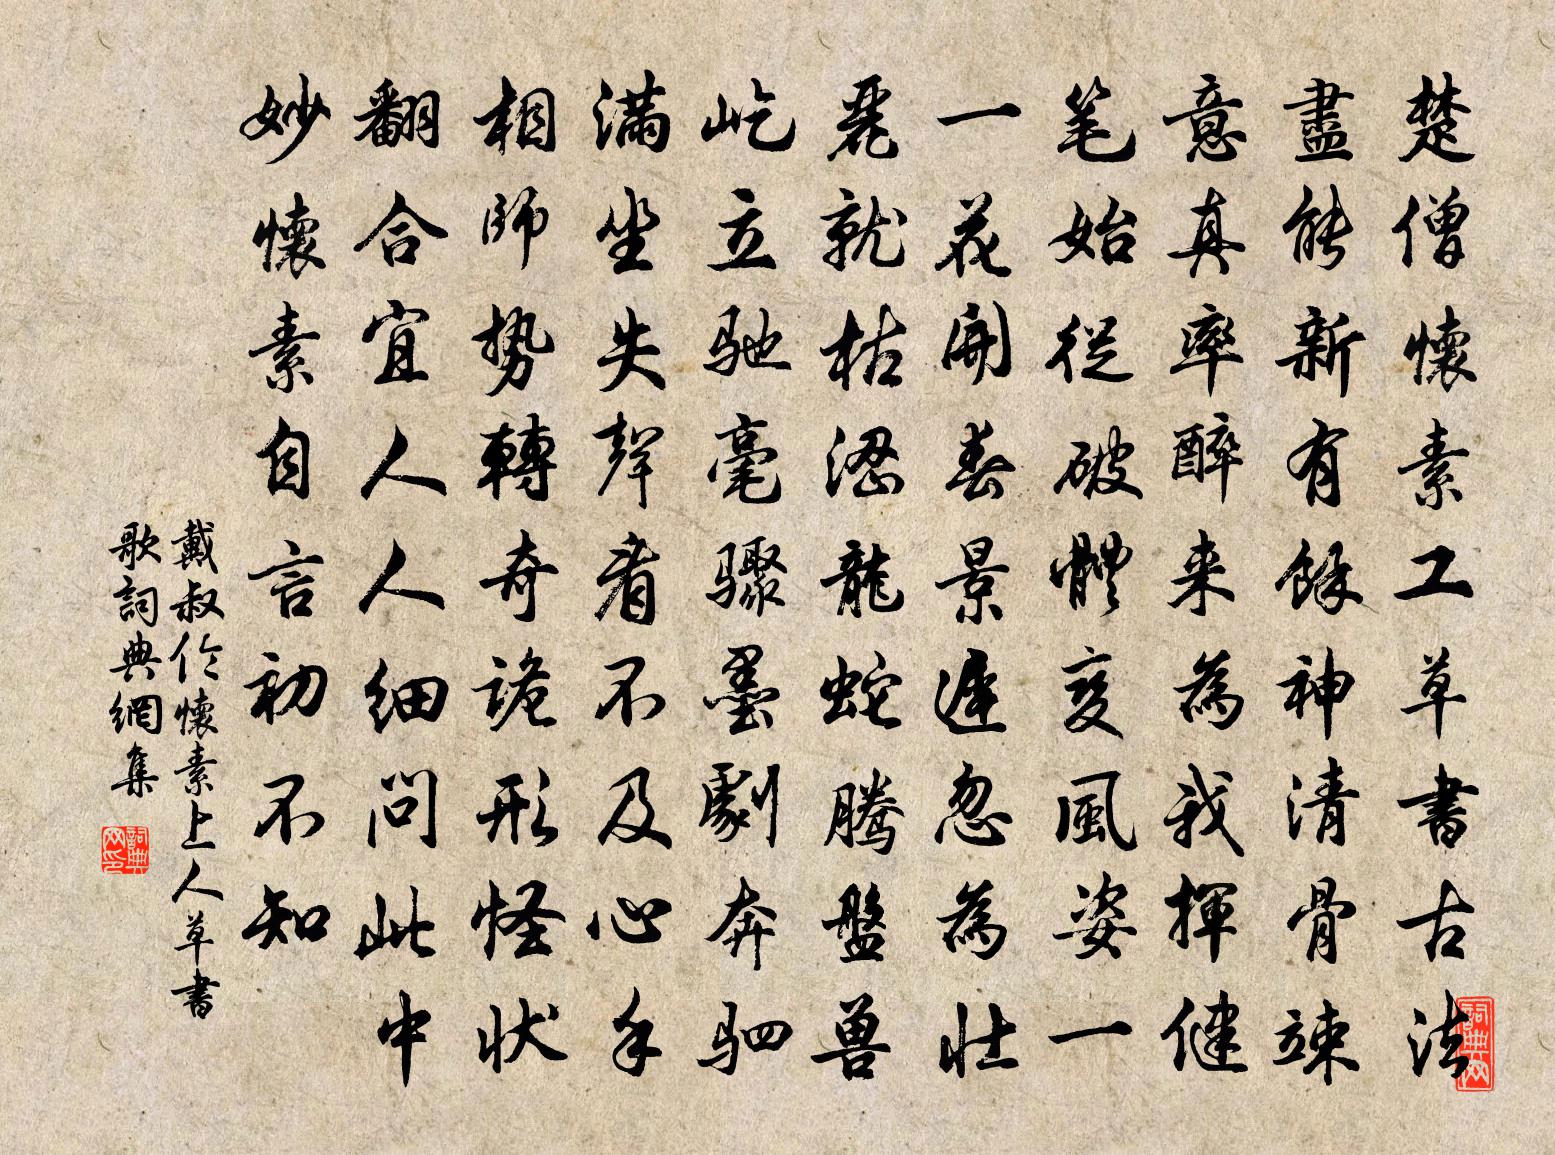 楚僧懷素工草書古法
盡能新有餘神清骨竦
意真率醉来為我揮健
笔始從破體變風姿一
一花開春景遲忽為壯
麗就枯澀龍蛇騰盤獸
屹立馳毫驟墨劇奔駟
滿坐失聲看不及心手
相師势轉奇詭形怪狀
翻合宜人人細問此中
妙懷素自言初不知
戴叔伦懷素上人草書
歌詞典網集
詞典网印
詞典网